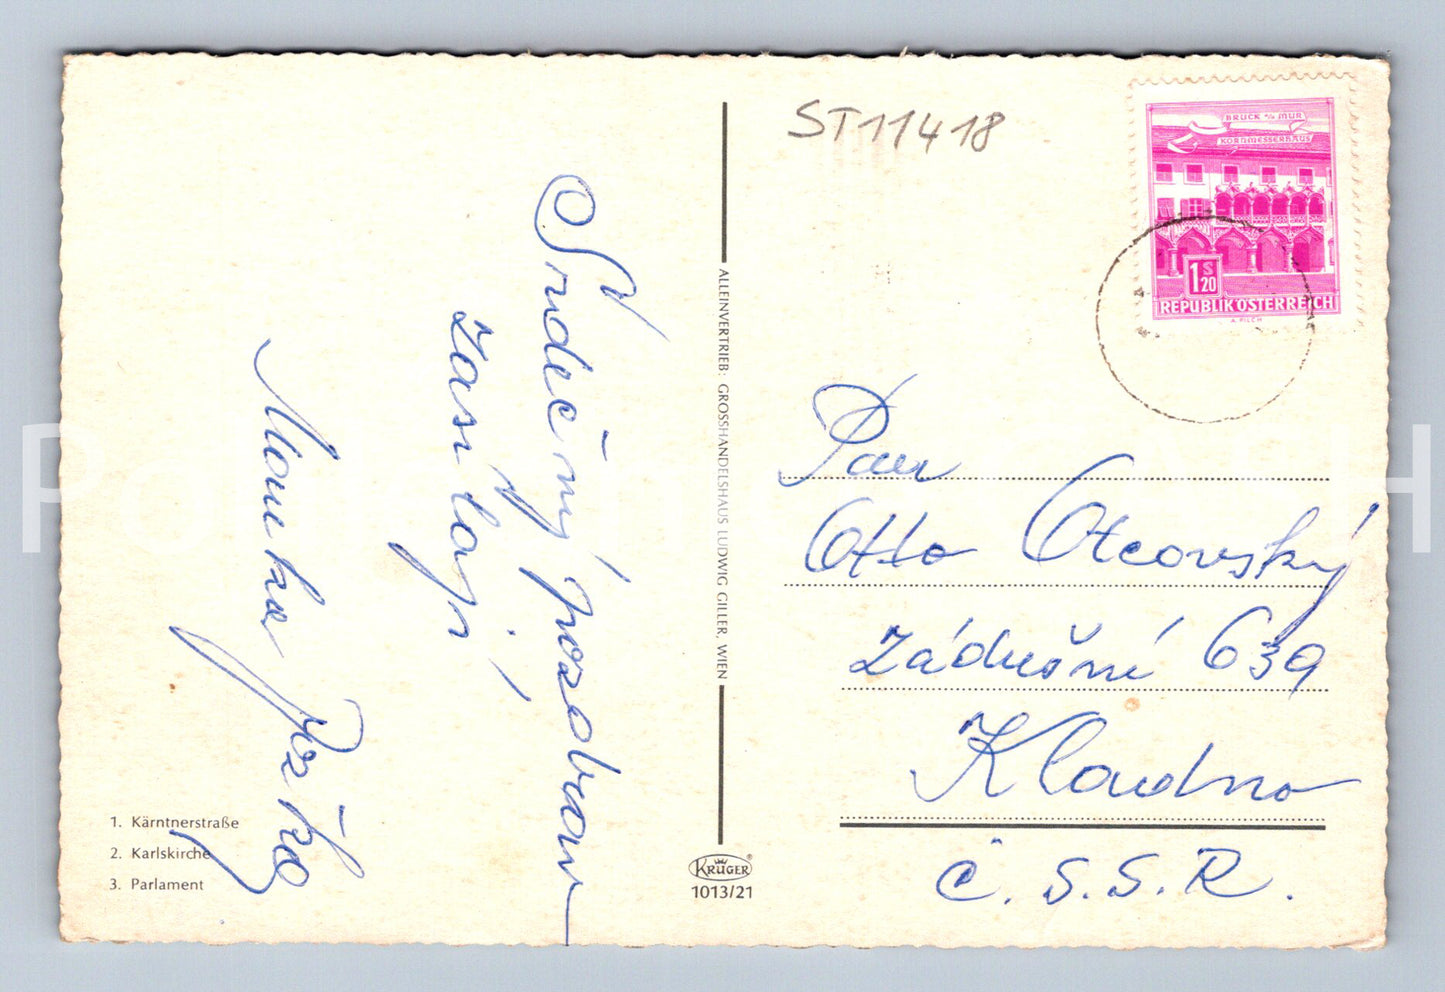 ST11418
BRUCK a/d MUR
KORNMESSERHAUS
1 S 20
REPUBLIK ÖSTERREICH
A. PILCH
Srdečný pozdrav
zasílají
Pan
Otto Otcovský
Zádušní 639
Kladno
Č.S.S.R.
ALLEINVERTRIEB: GROSSHANDELSHAUS LUDWIG GILLER, WIEN
1. Kärntnerstraße
2. Karlskirche
3. Parlament
KRÜGER
1013/21